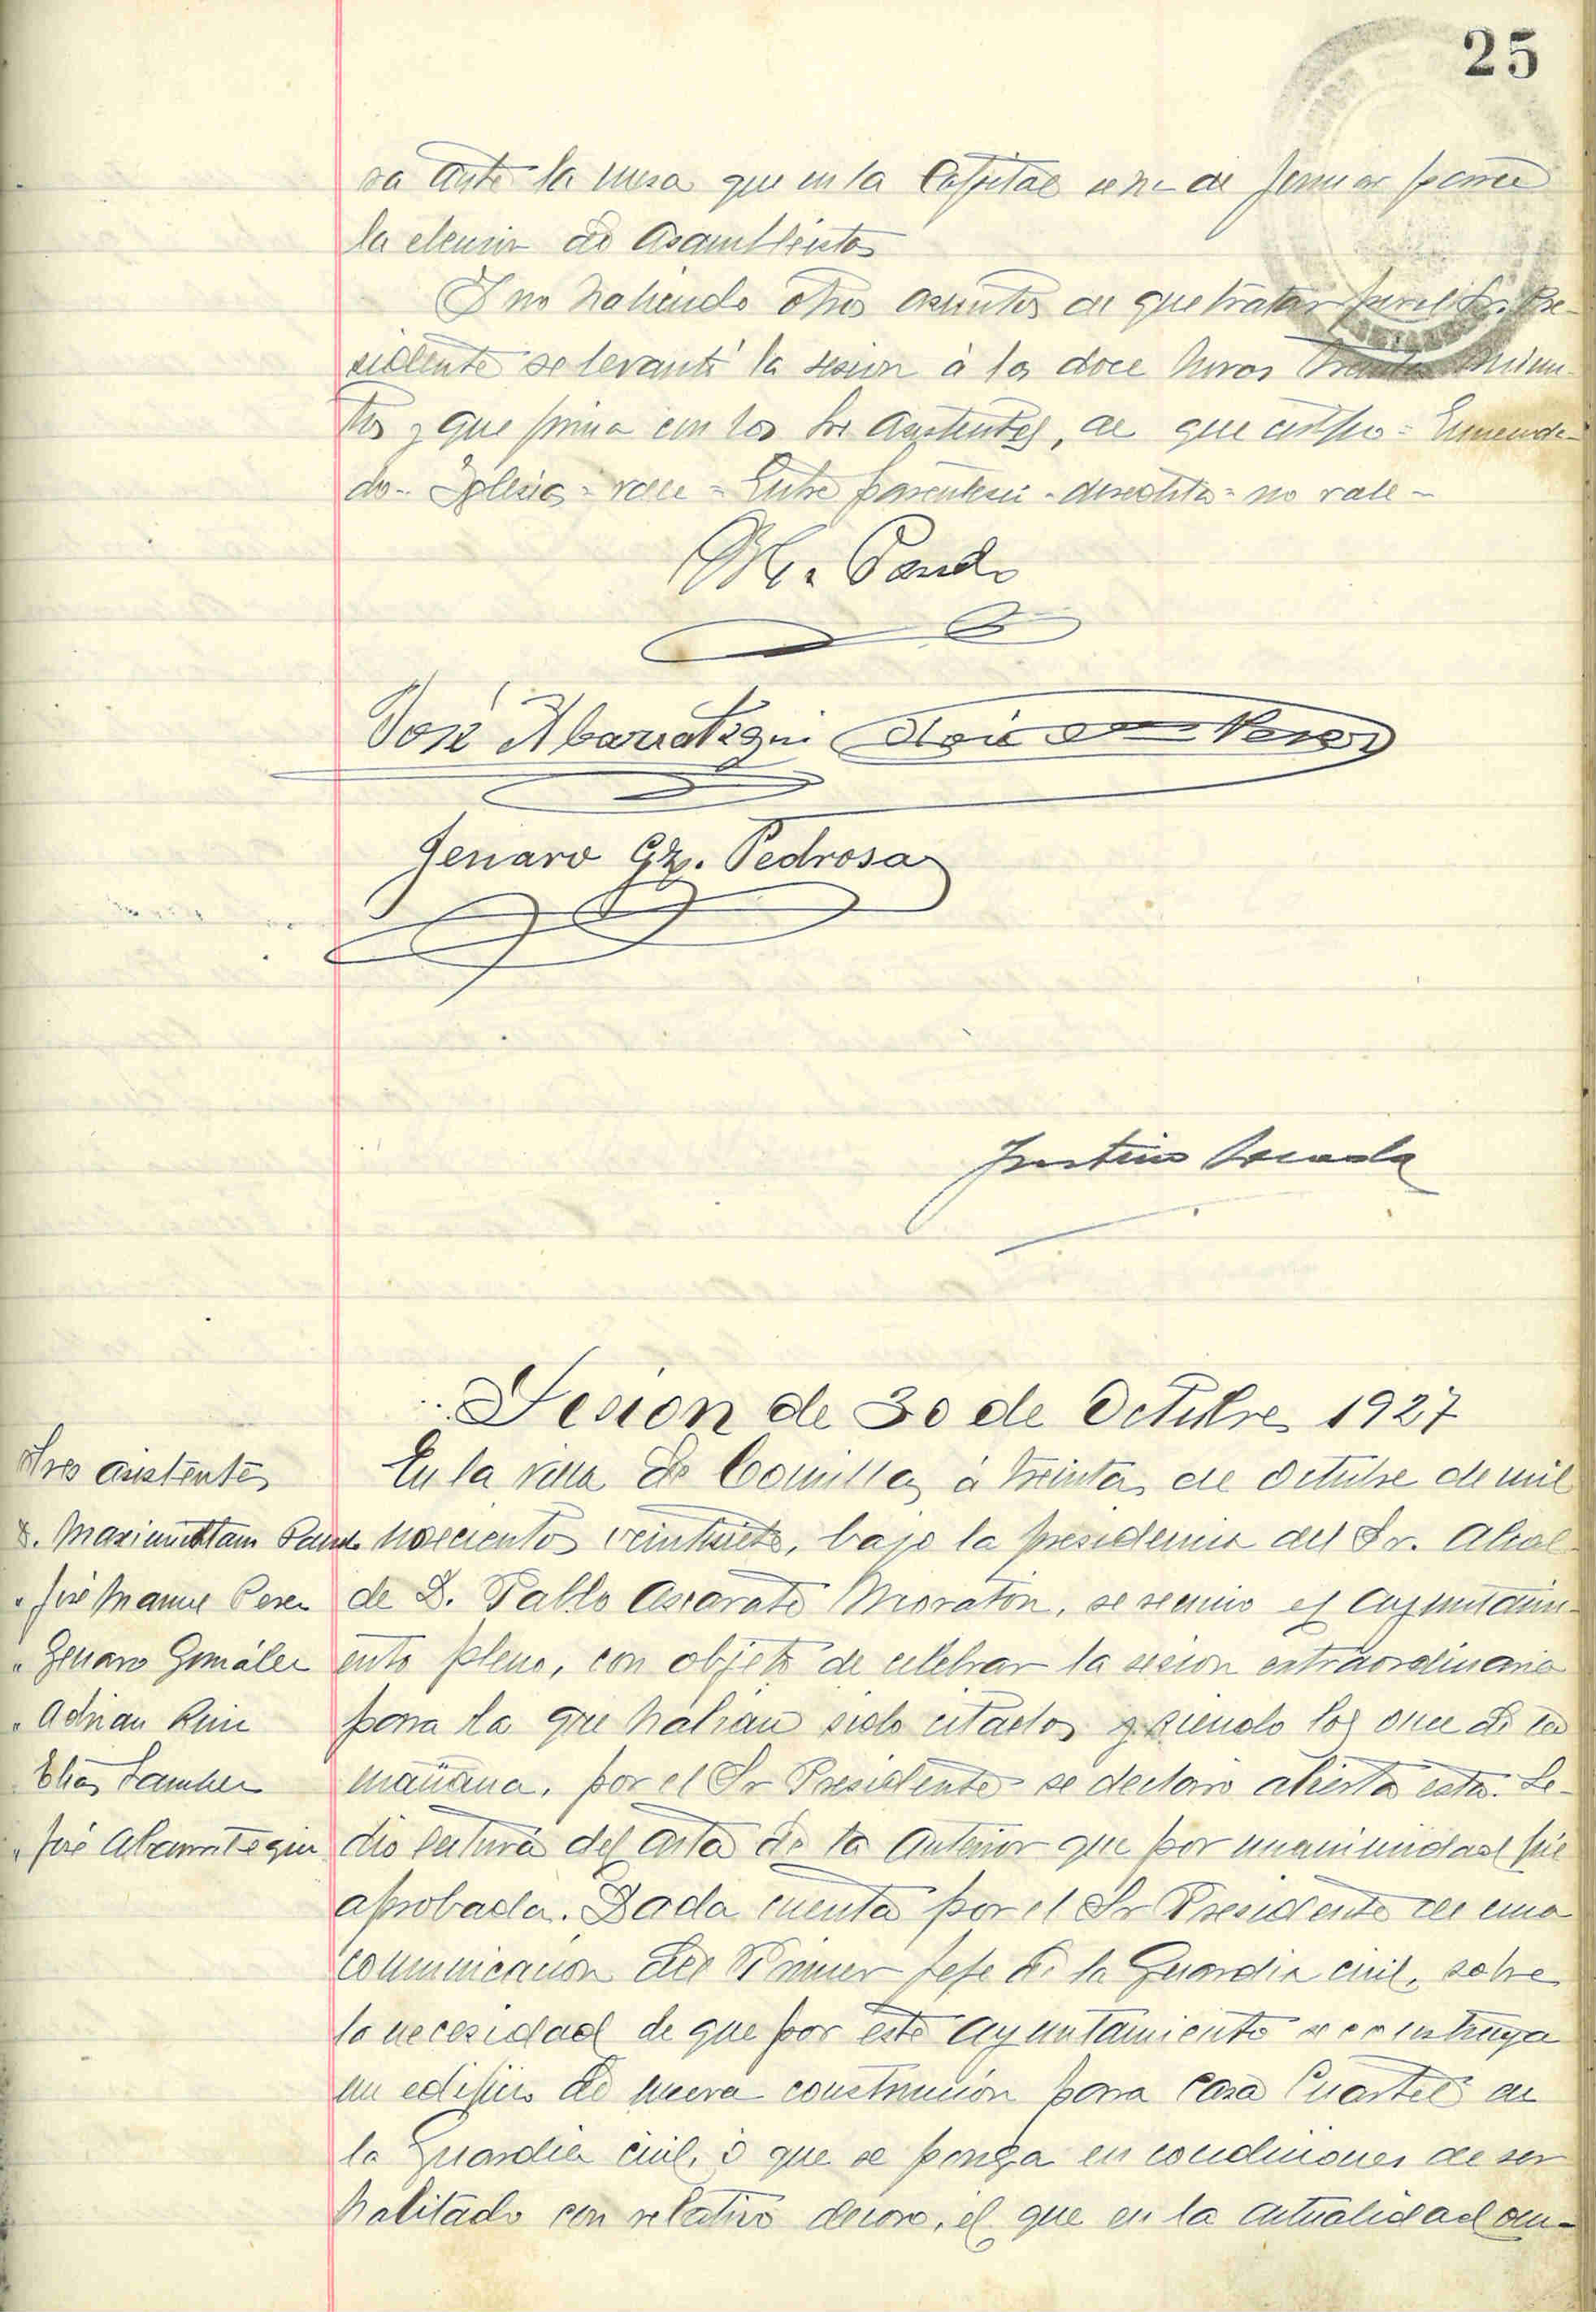 25
ra ante la mesa que en la Capital se ha de formar para
la eleccion de Asambleistas
Y no habiendo otros asuntos de que tratar por el Sr. Pre-
sidente se levantó la sesion á las doce horas treinta minu-
tos y que firma con los Sres asistentes, de que certifico = Enmenda-
do - Iglesias = vale = Entre parentesis - no vale -
M. Pando
José Abarrategui José M Perez
Jenaro Gz. Pedrosa
Sesion de 30 de Octubre 1927
Sres asistentes
D. Maximiliano Pando
" José Manuel Perez
" Genaro González
" Adrian Ruiz
Elias Sanchez
" José Abarrategui
En la villa de Comillas á treinta de Octubre de mil
novecientos veintisiete, bajo la presidencia del Sr. Alcal-
de D. Pablo Ascarate Moraton, se reunió el Ayuntami-
ento pleno, con objeto de celebrar la sesion extraordinaria
para la que habian sido citados y siendo las once de la
mañana, por el Sr Presidente se declaró abierta esta. Se
dio lectura del acta de la anterior que por unanimidad fué
aprobada. Dada cuenta por el Sr Presidente de una
comunicacion del Primer Jefe de la Guardia civil, sobre
la necesidad de que por este Ayuntamiento se construya
un edificio de nueva construccion para Casa Cuartel de
la Guardia civil, ó que se ponga en condiciones de ser
habitado con relativo decoro, el que en la actualidad ocu-